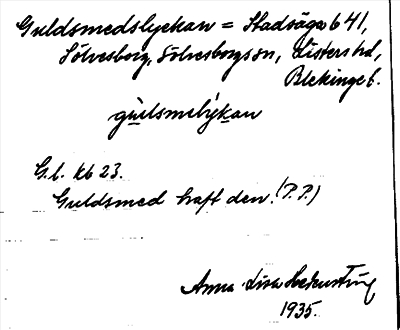 Guldsmedslyckan = Stadsäga 641,
Sölvesborg, Sölvesborgs sn, Listers hd,
Blekinge l.
gu̇lsmelykan
G.l. kb 23.
Guldsmed haft den! (P.P.)
Anna Lisa
1935.